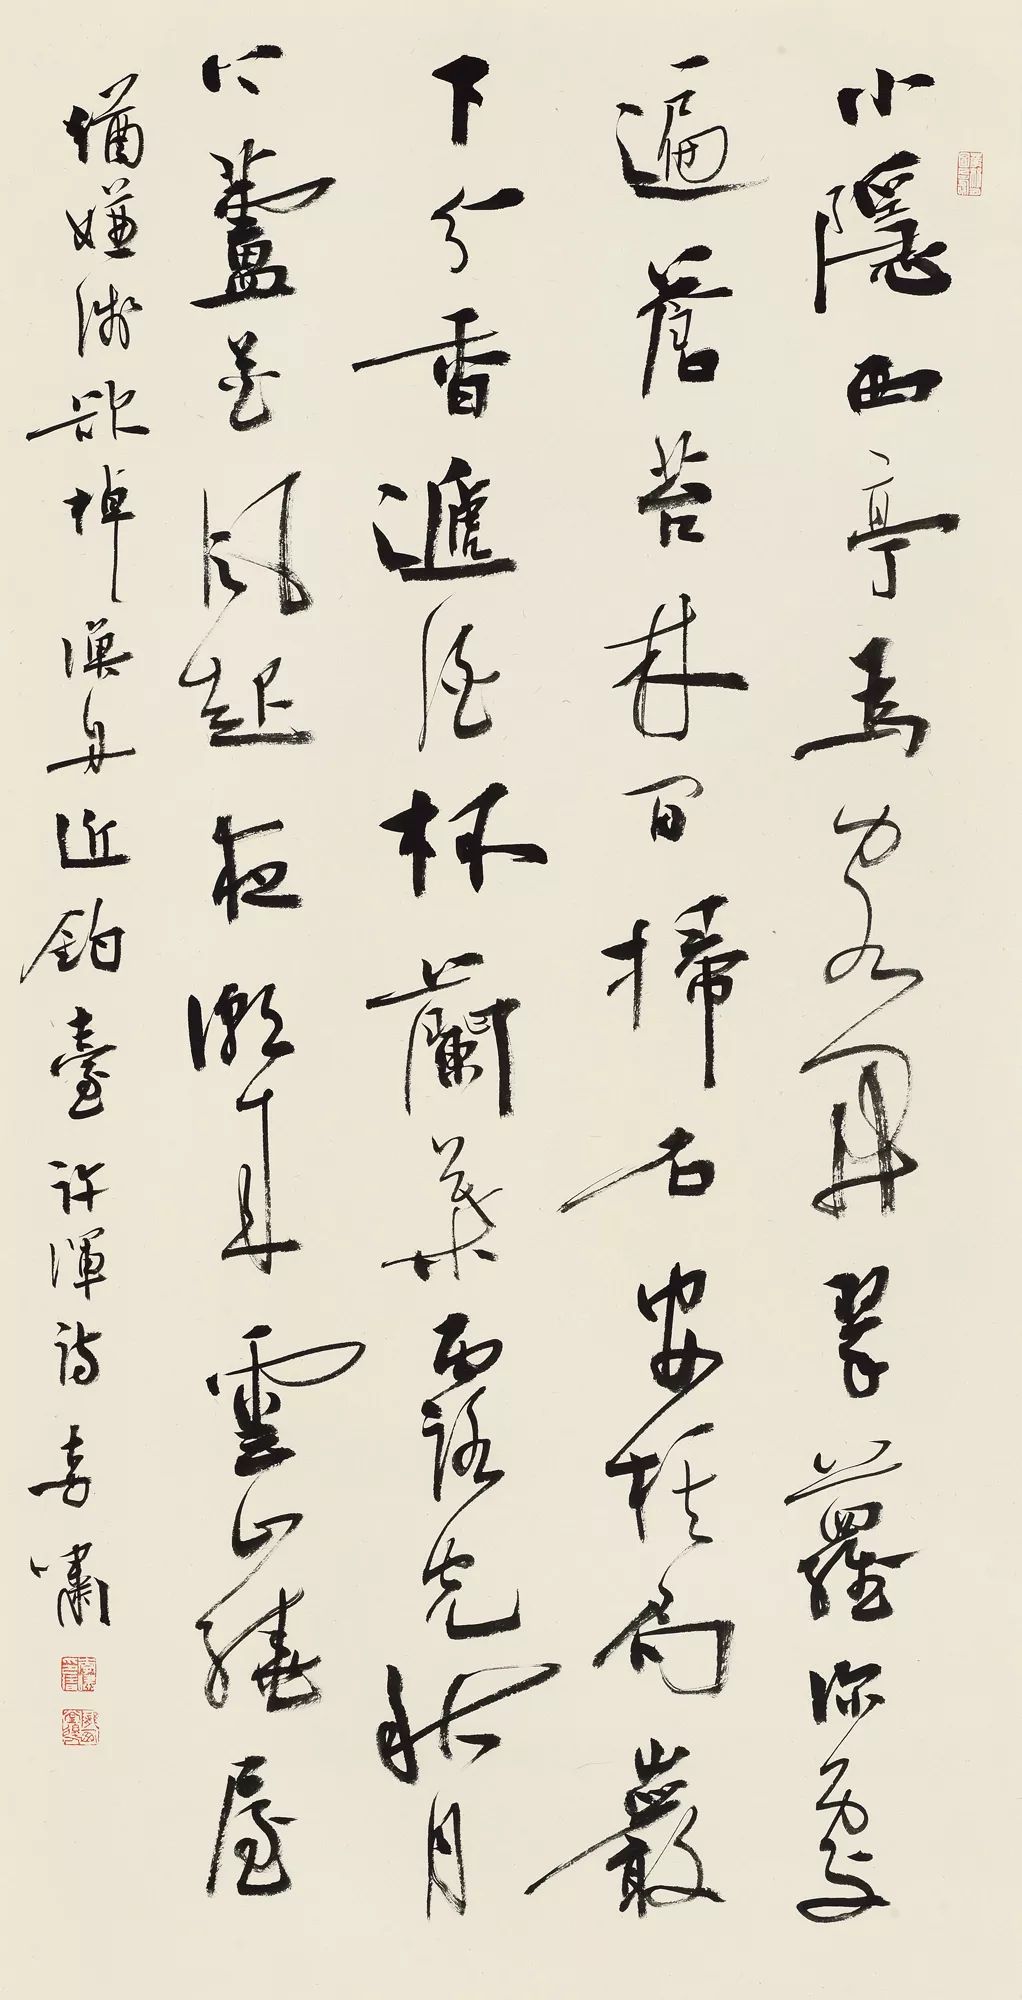 小隱西亭為客開翠蘿深處
遍蒼苔林間掃石安棋局巖
下分香遞酒杯蘭葉露光秋月
上蘆花風起夜潮來雲山繞屋
猶嫌淺欲棹漁舟近釣臺許渾詩李嘯